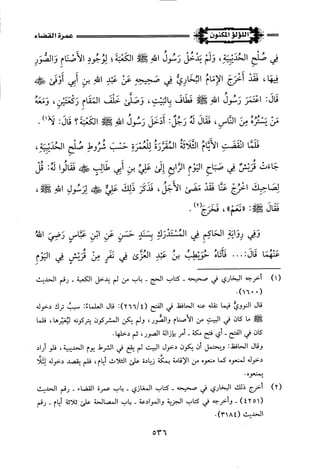 اللؤلؤ المكنون
عمرة القضاء
فِي صُلْحِ الحُدَيْبِيَةِ، وَلَمْ يَدْخُلْ رَسُولُ اللهِ ﷺ الكَعْبَةَ؛ لِوُجُودِ الأَصْنَامِ وَالصُّوَرِ
فِيهَا، فَقَدْ أَخْرَجَ الإِمَامُ البُخَارِيُّ فِي صَحِيحِهِ عَنْ عَبْدِ اللهِ بنِ أَبِي أَوْفَى ﷺ
قَالَ: اعْتَمَرَ رَسُولُ اللهِ ﷺ فَطَافَ بِالبَيْتِ، وَصَلَّى خَلْفَ المَقَامِ رَكْعَتَيْنِ، وَمَعَهُ
مَنْ يَسْتُرُهُ مِنَ النَّاسِ، فَقَالَ لَهُ رَجُلٌ: أَدَخَلَ رَسُولُ اللهِ ﷺ الكَعْبَةَ؟ قَالَ: لَا(١).
فَلَمَّا انْقَضَتِ الأَيَّامُ الثَّلَاثَةُ المُقَرَّرَةُ لِلْعُمْرَةِ حَسْبَ شُرُوطِ صُلْحِ الحُدَيْبِيَةِ،
جَاءَتْ قُرَيْشٌ فِي صَبَاحِ اليَوْمِ الرَّابِعِ إِلَى عَلِيِّ بنِ أَبِي طَالِبٍ ﷺ فَقَالُوا لَهُ: قُلْ
لِصَاحِبِكَ اخْرُجْ عَنَّا فَقَدْ مَضَى الأَجَلُ، فَذَكَرَ ذَلِكَ عَلِيٌّ ﷺ لِرَسُولِ اللهِ ﷺ،
فَقَالَ ﷺ: «نَعَمْ»، فَخَرَجَ(٢).
وَفِي رِوَايَةِ الحَاكِمِ فِي المُسْتَدْرَكِ بِسَنَدٍ حَسَنٍ عَنِ ابْنِ عَبَّاسٍ رَضِيَ اللهُ
عَنْهُمَا قَالَ: ... فَأَتَاهُ حُوَيْطِبُ بنُ عَبْدِ العُزَّى فِي نَفَرٍ مِنْ قُرَيْشٍ فِي اليَوْمِ
(١) أخرجه البخاري في صحيحه - كتاب الحج - باب من لم يدخل الكعبة - رقم الحديث
(١٦٠٠).
قال النووي فيما نقله عنه الحافظ في الفتح (٢٦٦/٤): قال العلماء: سبب ترك دخوله
ﷺ ما كان في البيت من الأصنام والصُّور، ولم يكن المشركون يتركونه ليُغيرها، فلما
كان في الفتح - أي فتح مكة - أمر بإزالة الصور، ثم دخلها.
وقال الحافظ: ويحتمل أن يكون دخول البيت لم يقع في الشرط يوم الحديبية، فلو أراد
دخوله لمنعوه كما منعوه من الإقامة بمكَّة زيادة على الثلاث أيام، فلم يقصد دخوله لِئَلَّا
يمنعوه.
(٢) أخرج ذلك البخاري في صحيحه - كتاب المغازي - باب عمرة القضاء - رقم الحديث
(٤٢٥١) - وأخرجه في كتاب الجزية والموادعة - باب المصالحة على ثلاثة أيام - رقم
الحديث (٣١٨٤).
٥٣٦